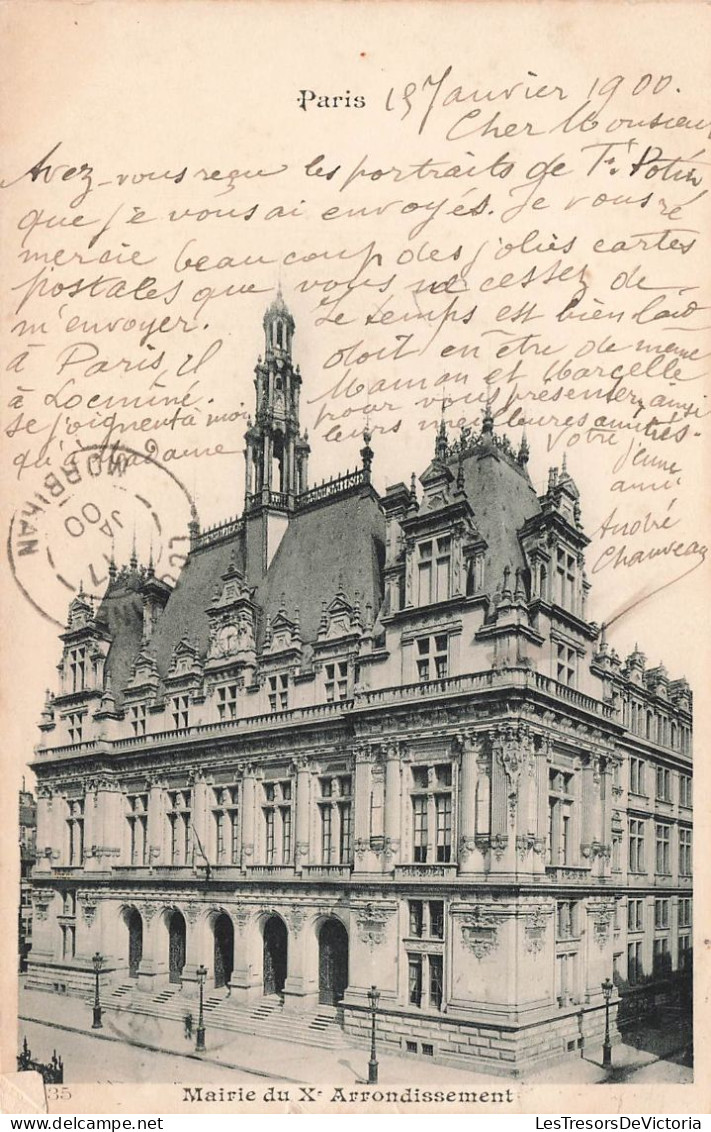 Paris
15 Janvier 1900.
Cher Monsieur
Avez-vous reçu les portraits de F. Potin
que je vous ai envoyés. Je vous ré
mercie beaucoup des jolies cartes
postales que vous ne cessez de
m'envoyer. Le temps est bien laid
à Paris, il doit en être de même
à Locminé. Maman et Marcelle
se joignent à moi pour vous présenter, ainsi
qu'à Madame leurs meilleures amitiés.
Votre
jeune
ami
André
Chauveau
MORBIHAN
17 JA 00
35
Mairie du Xe Arrondissement
LesTresorsDeVictoria
© DELCAMPE.NET / LesTresorsDeVictoria